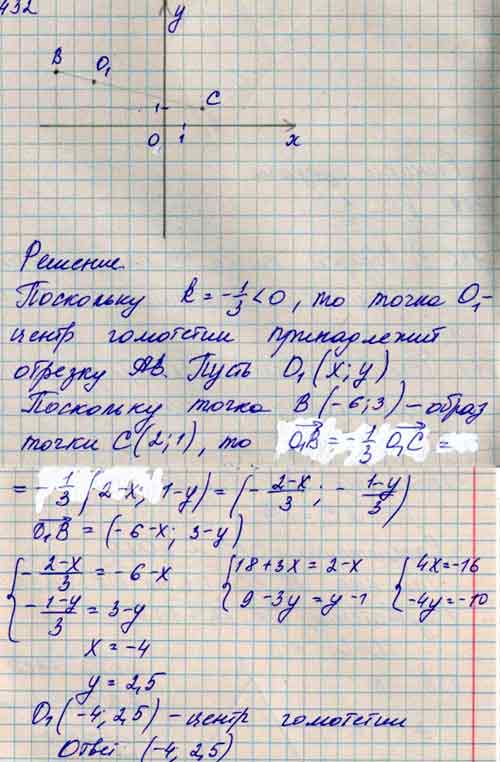 432
y
B O₁
C
1
O 1 x
Решение.
Поскольку k = -1/3 < 0, то точка O₁ -
центр гомотетии принадлежит
отрезку AB. Пусть O₁(x; y)
Поскольку точка B(-6; 3) - образ
точки C(2; 1), то O₁B = -1/3 O₁C =
= -1/3 (2-x; 1-y) = (-(2-x)/3; -(1-y)/3)
O₁B = (-6-x; 3-y)
{ -(2-x)/3 = -6-x { 18+3x = 2-x { 4x = -16
{ -(1-y)/3 = 3-y { 9-3y = y-1 { -4y = -10
x = -4
y = 2,5
O₁(-4; 2,5) - центр гомотетии
Ответ (-4, 2,5)